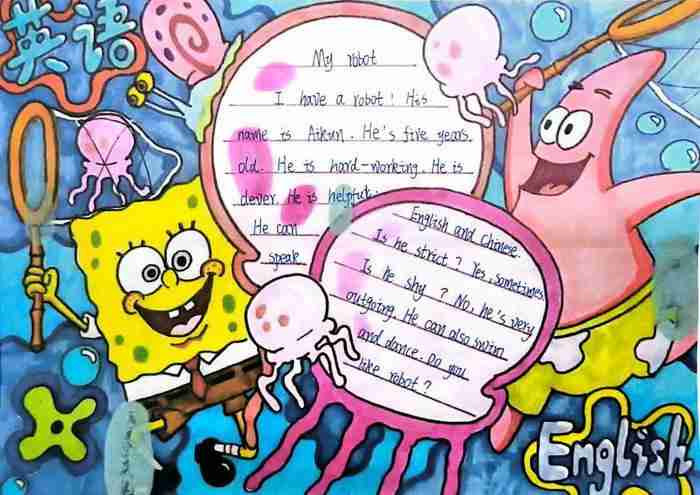 英语
My robot
I have a robot! His
name is Aikun. He's five years
old. He is hard-working. He is
clever. He is helpful.
He can
speak
English and Chinese.
Is he strict? Yes, sometimes.
Is he shy? No, he's very
outgoing. He can also swim
and dance. Do you
like robot?
English